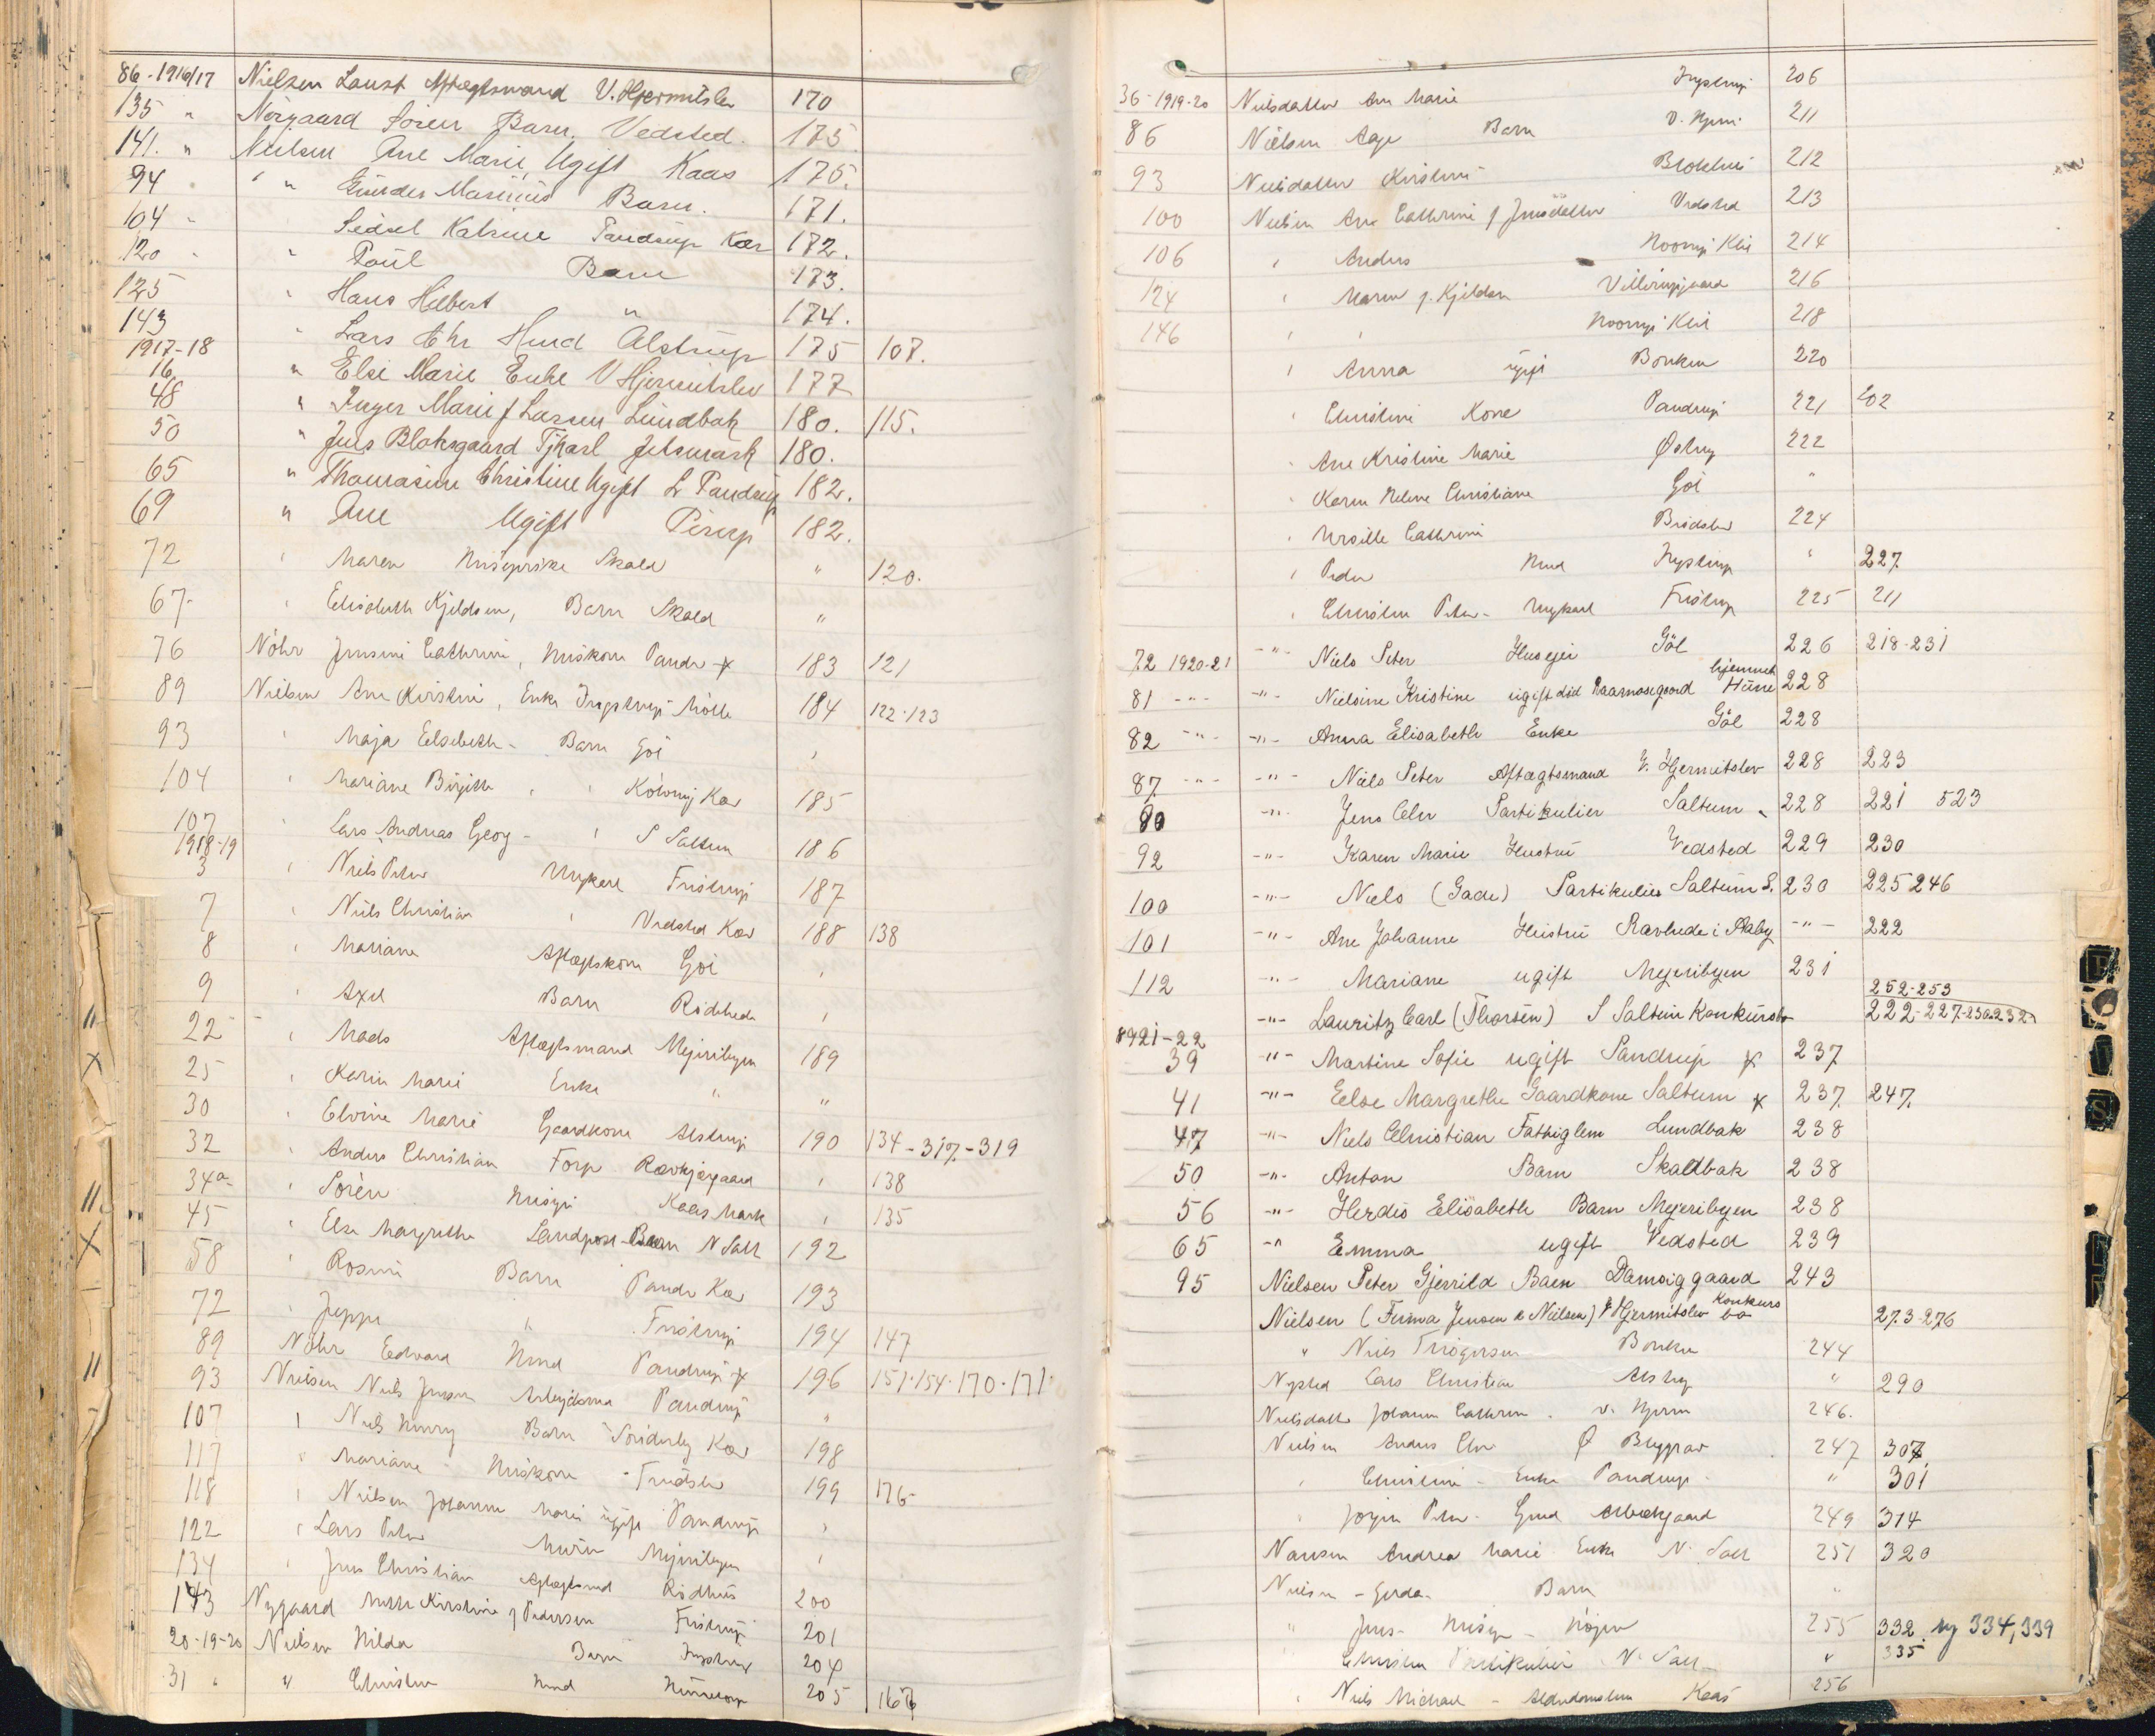 86-1916/17 Nielsen Laust Aftægtsmand V. Hjermitslev 170
135 " Nörgaard Sören Barn. Vedsted. 175.
141. " Nielsen Ane Marie, Ugift Kaas 175.
94 " Marinus Barn. 171.
104 - Sidsel Katrine Pandrup Kær 172.
120 " Poul Barn 173.
125 " Hans Hilbert " 174.
143 " Lars Chr Hmd Alstrup 175 107.
1917-18
16 " Else Marie Enke V Hjermitslev 177
48 " Inger Marie f Larsen Lundbak 180. 115.
50 " Jens Bloksgaard Tjkarl Jetsmark 180.
65 " Thomasine Christine Ugift L Pandrup 182.
69 " Ane Ugift Pirup 182.
72 " Maren Skald " 120.
67- " Elisabeth Kjeldsen, Barn Skald "
76 Nöhr Jensine Cathrine, Huskone Pandr 183 121
89 Nielsen Ane Kirstine, Enke Ingstrup Mölle 184 122-123
93 " Maja Elsebeth - Barn Gøl "
104 " Mariane Birgitte " " Kær 185
107 " Lars Andreas Georg - " S Saltum 186
1918-19
3 " Niels Peter Ungkarl Fristrup 187
7 " Niels Christian " Vedsted Kær 188 138
8 " Mariane Aftægtskone Gøl "
9 " Axel Barn Rödhede "
22 " Mads Aftægtsmand Mejeribyen 189
25 " Karen Marie Enke " "
30 " Elvine Marie Gaardkone Alstrup 190 134-317-319
32 " Anders Christian Forp Ravkjærgaard " 138
34a " Sören Husejer Kaas Mark " 135
45 " Else Margrethe Landpost-Barn N Salt 192
58 " Rosine Barn Pandr Kær 193
72 " Jeppe " Fristrup 194 147
89 Nöhr Edvard Hmd Pandrup 196 151-154-170-171
93 Nielsen Niels Jensen Pandrup "
107 " Niels Henry Barn Sönderby Kær 198
117 " Mariane Huskone 199 176
118 " Nielsen Johanne Marie ugift Pandrup "
122 " Lars Peter Murer Mejeribyen "
134 " Jens Christian Aftægtsmd Rödhus 200
143 Nygaard Mette Kirstine f Pedersen Fristrup 201
20-19-20 Nielsen Hilda Barn Ingstrup 204
31 " " Christen Hmd Hunetorp 205 167
36-1919-20 Nielsdatter Ane Marie Ingstrup 206
86 Nielsen Aage Barn V. Hjerm. 211
93 Nielsdatter Kirstine Blokhus 212
100 Nielsen Ane Cathrine f Jensdatter Vedsted 213
106 " Anders Moorup Klit 214
124 " Maren f. Kjeldsen Villerupgaard 216
146 " " Moorup Klit 218
" Anna ugift Bonken 220
" Christine Kone Pandrup 221 202
" Ane Kristine Marie Østrup 222
" Karen Helene Christiane Gøl "
" Ursille Cathrine 224
" Peder Hmd Ingstrup " 227
" Christen Peter - Ungkarl Fristrup 225 211
72 1920-21 -"- Niels Peter Husejer Göl 226 218-231
81 -"- -"- Nielsine Kristine ugift död Raamosegaard hjemmeh Hune 228
82 -"- -"- Anna Elisabeth Enke Göl 228
87 -"- -"- Niels Peter Aftægtsmand V. Hjermitslev 228 223
90 -"- Jens Chr Partikulier Saltum 228 221 523
92 -"- Karen Marie Hustru Vedsted 229 230
100 -"- Niels (Gade) Partikulier Saltum S. 230 225 246
101 -"- Ane Johanne Hustru Ravhede i Aaby -"- 222
112 -"- Mariane ugift Mejeribyen 231
252-253
-"- Lauritz Carl (Thorsen) S Saltum Konkursbo 222-227-230-232
1921-22
39 -"- Martine Sofie ugift Pandrup 237
41 -"- Else Margrethe Gaardkone Saltum 237. 247.
47 -"- Niels Christian Fattiglem Lundbak 238
50 -"- Anton Barn Skaldbak 238
56 -"- Herdis Elisabeth Barn Mejeribyen 238
65 -"- Emma ugift Vedsted 239
95 Nielsen Peter Gjerrild Barn Damsiggaard 243
Nielsen (Firma Jensen & Nielsen) V Hjermitslev Konkurs bo 273-276
" Niels Bonken 244
Nysted Lars Christian Alstrup " 290
Nielsdatter Johanne Cathrine . V. Hjerm 246.
Nielsen Anders Chr Ø 247 307
" Christine - Enke Pandrup " 301
" Jörgen Peter - Gmd 249 314
Nansen Andrea Marie Enke N. Salt 251 320
Nielsen - Gerda - Barn "
" Jens - Husejer - 255 332 ny 334, 339
" Christen Partikulier N. Salt " 335
" Niels Michael - Kaas 256